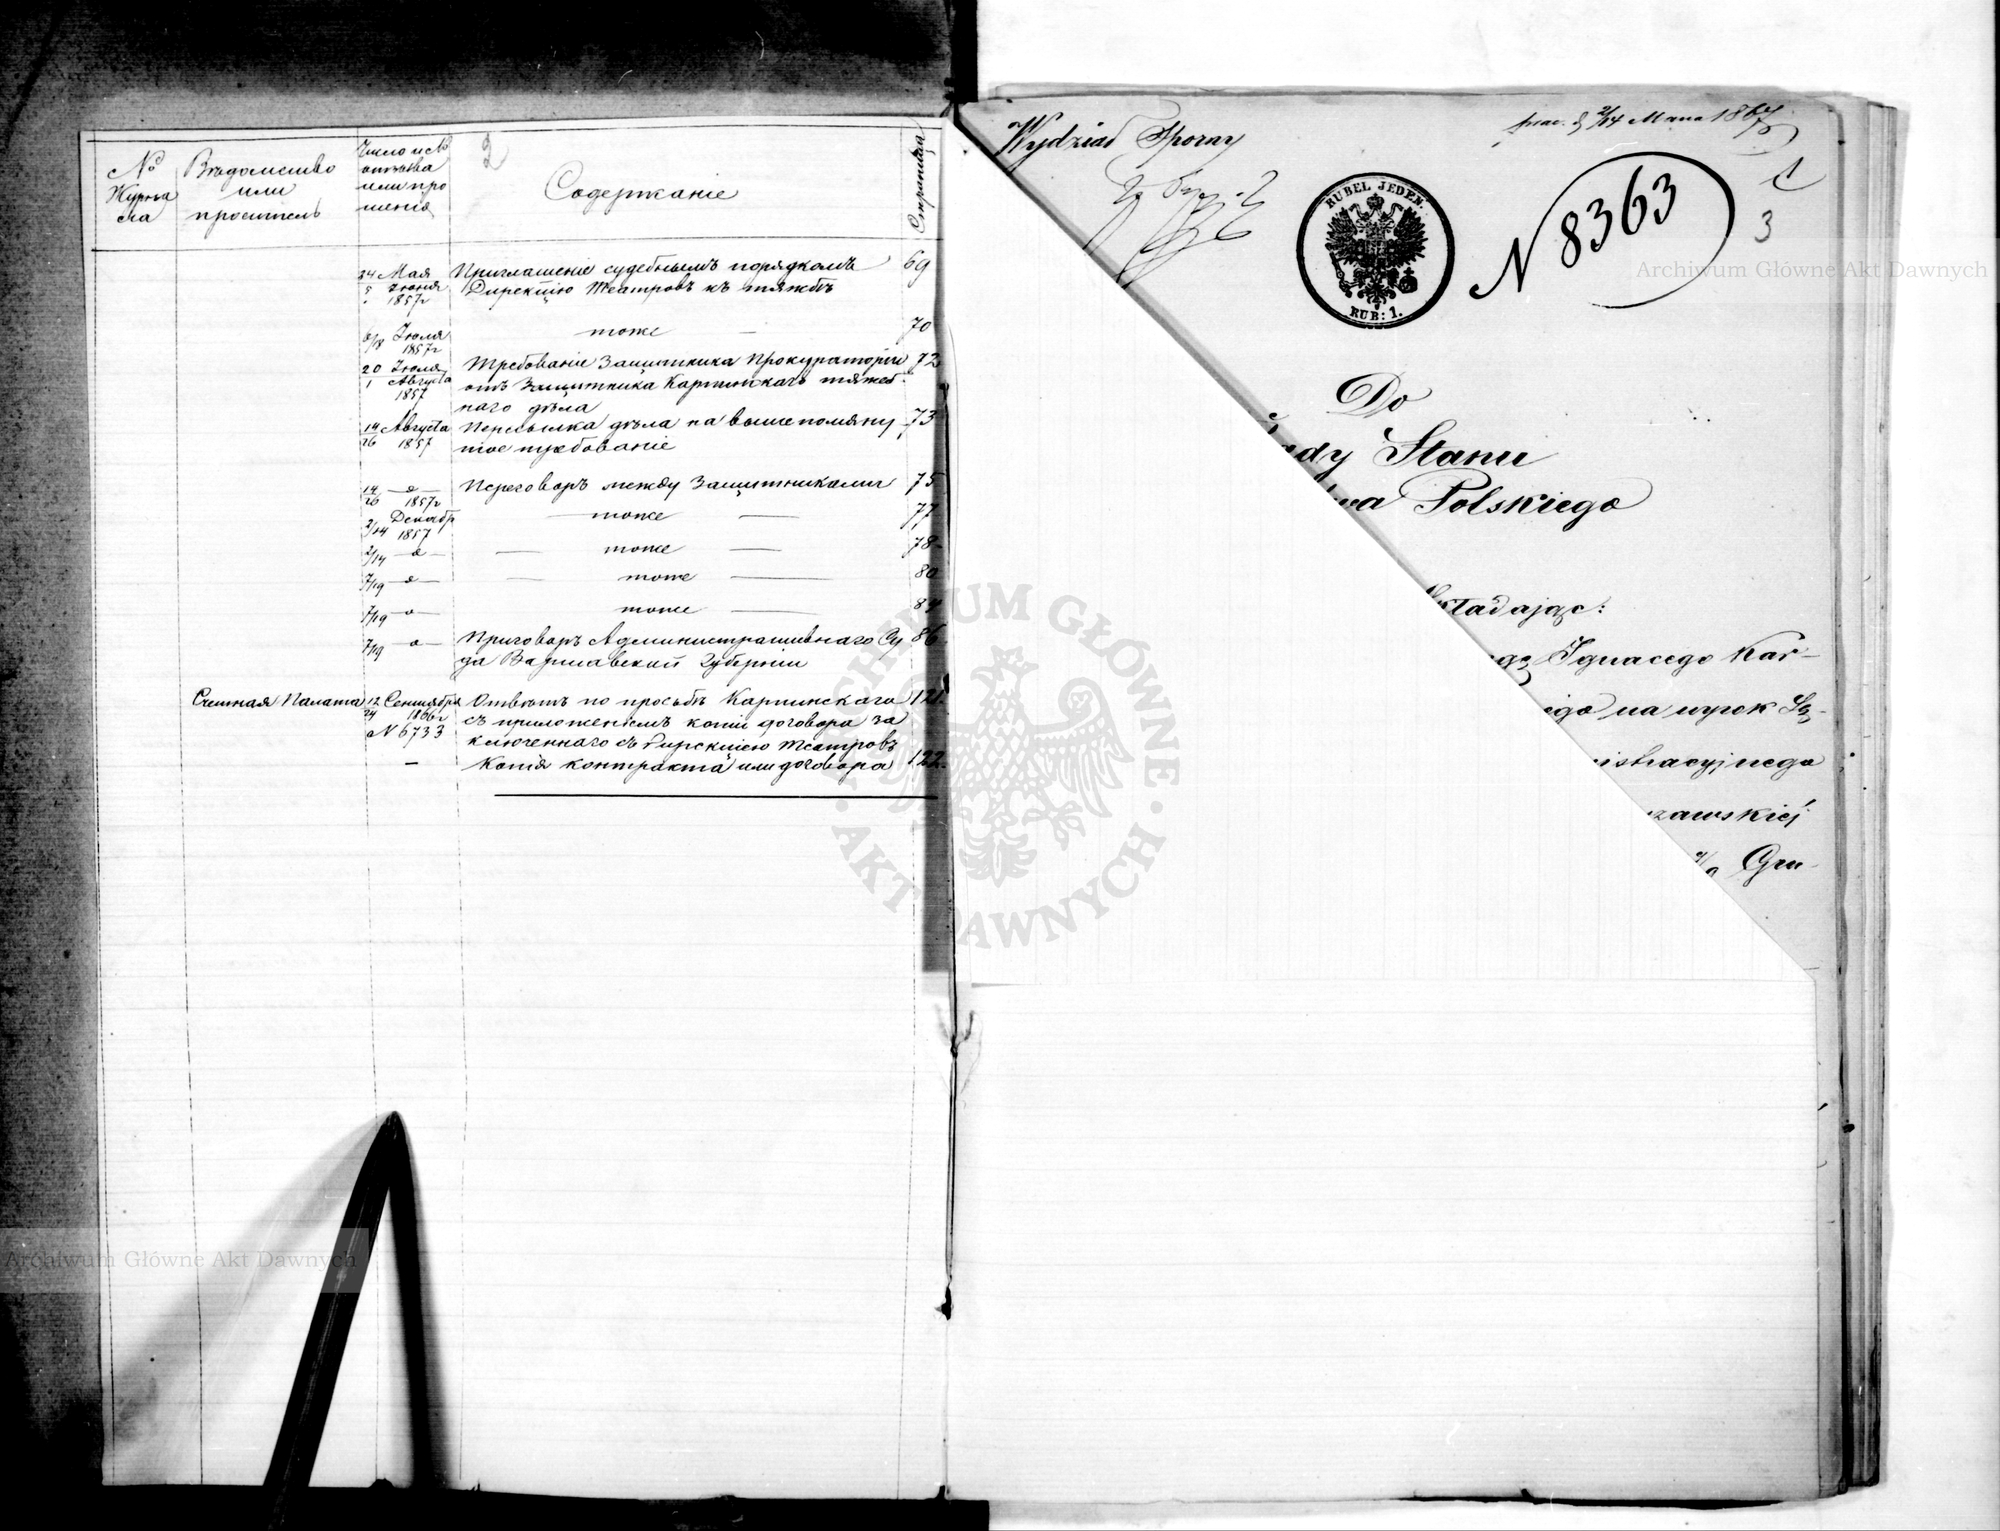 2
№ Журнала
Вѣдомство или проситель
Число и № отзыва или прошенія
Содержаніе
Страница
24 Мая
5 Іюня
1857г
Приглашеніе судебнымъ порядкомъ 69
Дирекцію Театровъ къ тяжбѣ
6/18 Іюля
1857г
тоже — 70
20 Іюля
1 Августа
1857
Требованіе Защитника Прокураторіи 72
отъ Защитника Карпинскаго тяжеб-
наго дѣла
14 Августа
26 1857
Пересылка дѣла на вышепомяну 73
тое требованіе
14
26 1857г
Переговоръ между Защитниками 75
Декабр
2/14 1857
— тоже — 77
2/14 — тоже — 78
7/19 — тоже — 80
7/19 — тоже — 84
7/19 Приговоръ Административнаго Су 86
да Варшавской Губерніи
Счетная Палата 12 Сентября
24 1866г
N 6733
Отвѣтъ по просьбѣ Карпинскаго 121
съ приложеніемъ копіи договора за
ключеннаго съ Дирекціею Театровъ
— Копія контракта или договора 122
Wydział Sporny
2/14 Marca 1867
RUBEL JEDEN.
RUB: 1.
N 8363
1
3
Do
ady Stanu
wa Polskiego
kładając:
Ignacego Kar-
iego na wyrok Są-
nistracyjnego
szawskiéj
Gru-
Archiwum Główne Akt Dawnych
ARCHIWUM GŁÓWNE · AKT DAWNYCH ·
Archiwum Główne Akt Dawnych